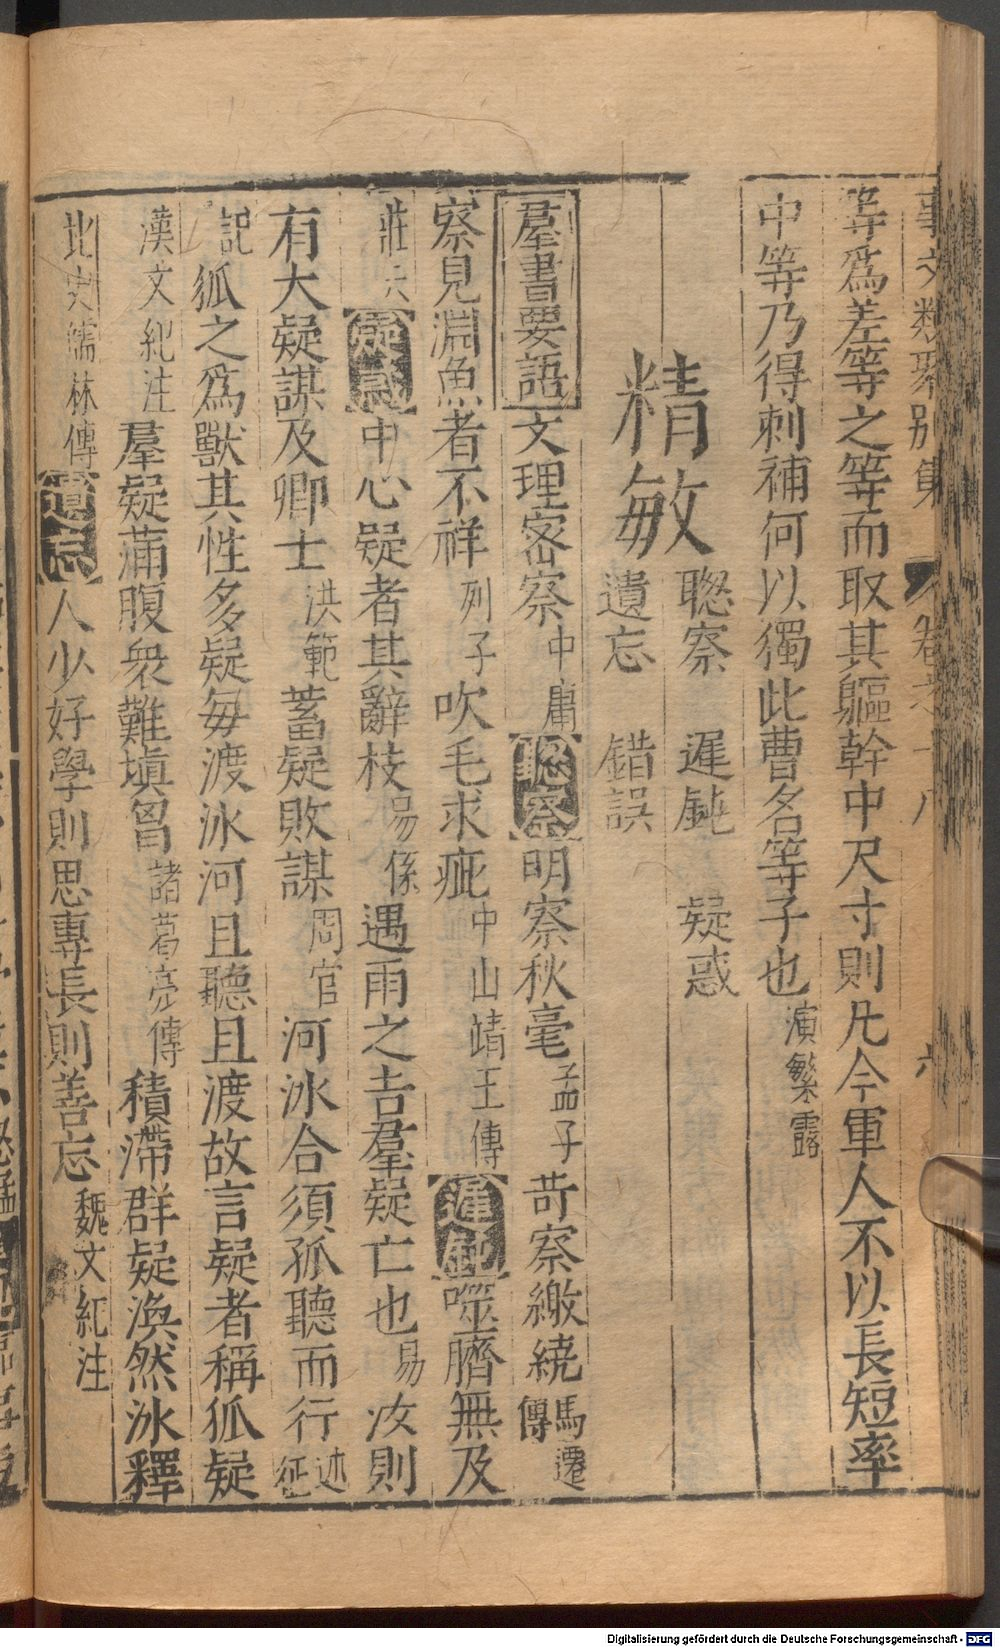 事文類聚別集 卷 六
等爲差等之等而取其軀幹中尺寸則凡今軍人不以長短率
中等乃得刺補何以獨此曹名等子也演繁露
精敏 聦察 遲鈍 疑惑
遺忘 錯誤
羣書要語文理密察中庸聦察明察秋毫孟子苛察繳繞馬遷傳
察見淵魚者不祥列子吹毛求疵中山靖王傳遲鈍噬臍無及
莊六疑惑中心疑者其辭枝易係遇雨之吉羣疑亡也易汝則
有大疑謀及卿士洪範蓄疑敗謀周官河氷合須狐聽而行述征
記狐之爲獸其性多疑每渡氷河且聽且渡故言疑者稱狐疑
漢文紀注羣疑滿腹衆難塡胷諸葛亮傳積滯群疑渙然氷釋
北史儒林傳遺忘人少好學則思專長則善忘魏文紀注
Digitalisierung gefördert durch die Deutsche Forschungsgemeinschaft - DFG